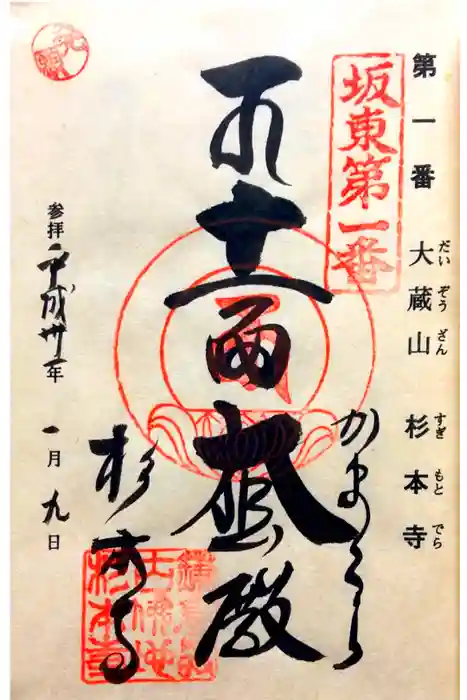 第一番 大蔵山 杉本寺
だいぞうざん すぎもとでら
坂東第一番
かまくら
十一面大悲殿
杉本寺
杉本寺
参拝 平成卅一年 一月九日
発願